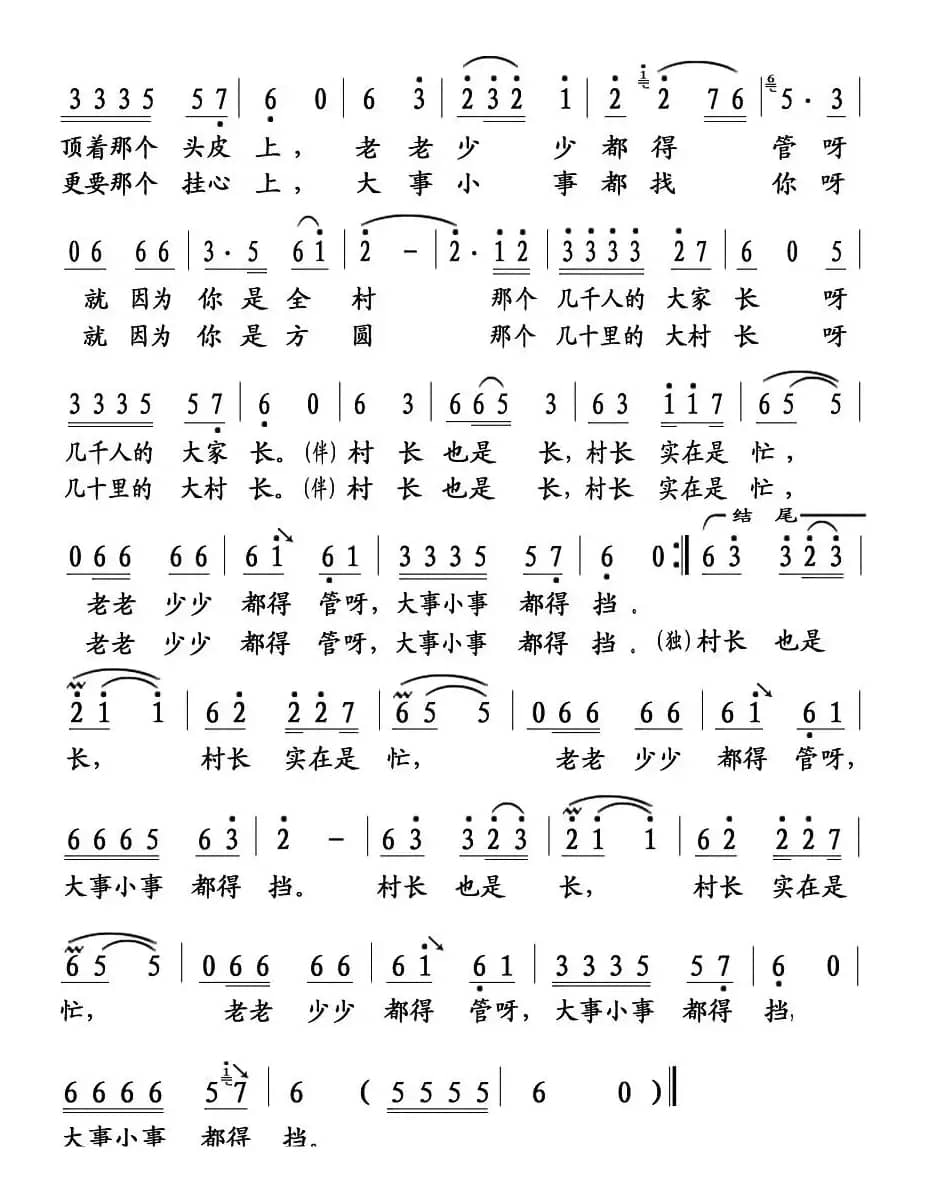 3 3 3 5 5 7 | 6 0 | 6 3 | 2 3 2 1 | 2 1 2 7 6 | 6 5 · 3 |
顶着那个 头皮 上， 老 老 少 少 都 得 管 呀
更要那个 挂心 上， 大 事 小 事 都 找 你 呀
0 6 6 6 | 3 · 5 6 1 | 2 - | 2 · 1 2 | 3 3 3 3 2 7 | 6 0 5 |
就 因为 你 是 全 村 那个 几千人的 大家 长 呀
就 因为 你 是 方 圆 那个 几十里的 大村 长 呀
3 3 3 5 5 7 | 6 0 | 6 3 | 6 6 5 3 | 6 3 1 1 7 | 6 5 5 |
几千人的 大家 长。（伴）村 长 也是 长，村长 实在是 忙，
几十里的 大村 长。（伴）村 长 也是 长，村长 实在是 忙，
结 尾
0 6 6 6 6 | 6 1 6 1 | 3 3 3 5 5 7 | 6 0 :‖ 6 3 3 2 3 |
老老 少少 都得 管呀，大事小事 都得 挡。
老老 少少 都得 管呀，大事小事 都得 挡。（独）村长 也是
2 1 1 | 6 2 2 2 7 | 6 5 5 | 0 6 6 6 6 | 6 1 6 1 |
长， 村长 实在是 忙， 老老 少少 都得 管呀，
6 6 6 5 6 3 | 2 - | 6 3 3 2 3 | 2 1 1 | 6 2 2 2 7 |
大事小事 都得 挡。 村长 也是 长， 村长 实在是
6 5 5 | 0 6 6 6 6 | 6 1 6 1 | 3 3 3 5 5 7 | 6 0 |
忙， 老老 少少 都得 管呀，大事小事 都得 挡；
6 6 6 6 5 1 7 | 6 ( 5 5 5 5 | 6 0 ) ‖
大事小事 都得 挡。